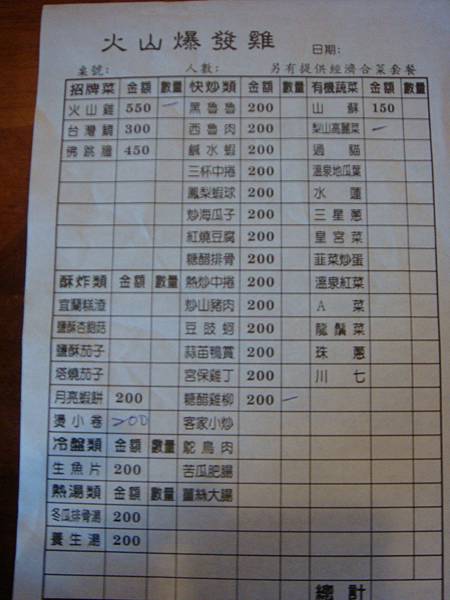 火山爆發雞
日期:
桌號: 人數: 另有提供經濟合菜套餐
招牌菜 金額 數量 快炒類 金額 數量 有機蔬菜 金額 數量
火山雞 550 一 黑魯魯 200 山蘇 150
台灣鯛 300 西魯肉 200 梨山高麗菜
佛跳牆 450 鹹水蝦 200 過貓
三杯中捲 200 溫泉地瓜葉
鳳梨蝦球 200 水蓮
炒海瓜子 200 三星蔥
紅燒豆腐 200 皇宮菜
糖醋排骨 200 韮菜炒蛋
酥炸類 金額 數量 熱炒中捲 200 溫泉紅菜
宜蘭糕渣 炒山豬肉 200 A菜
鹽酥杏鮑菇 豆豉蚵 200 龍鬚菜
鹽酥茄子 蒜苗鴨賞 200 珠蔥
塔燒茄子 宮保雞丁 200 川七
月亮蝦餅 200 糖醋雞柳 200 一
燙小卷 200 客家小炒
冷盤類 金額 數量 鴕鳥肉
生魚片 200 苦瓜肥腸
熱湯類 金額 數量 薑絲大腸
冬瓜排骨湯 200
養生湯 200
總計